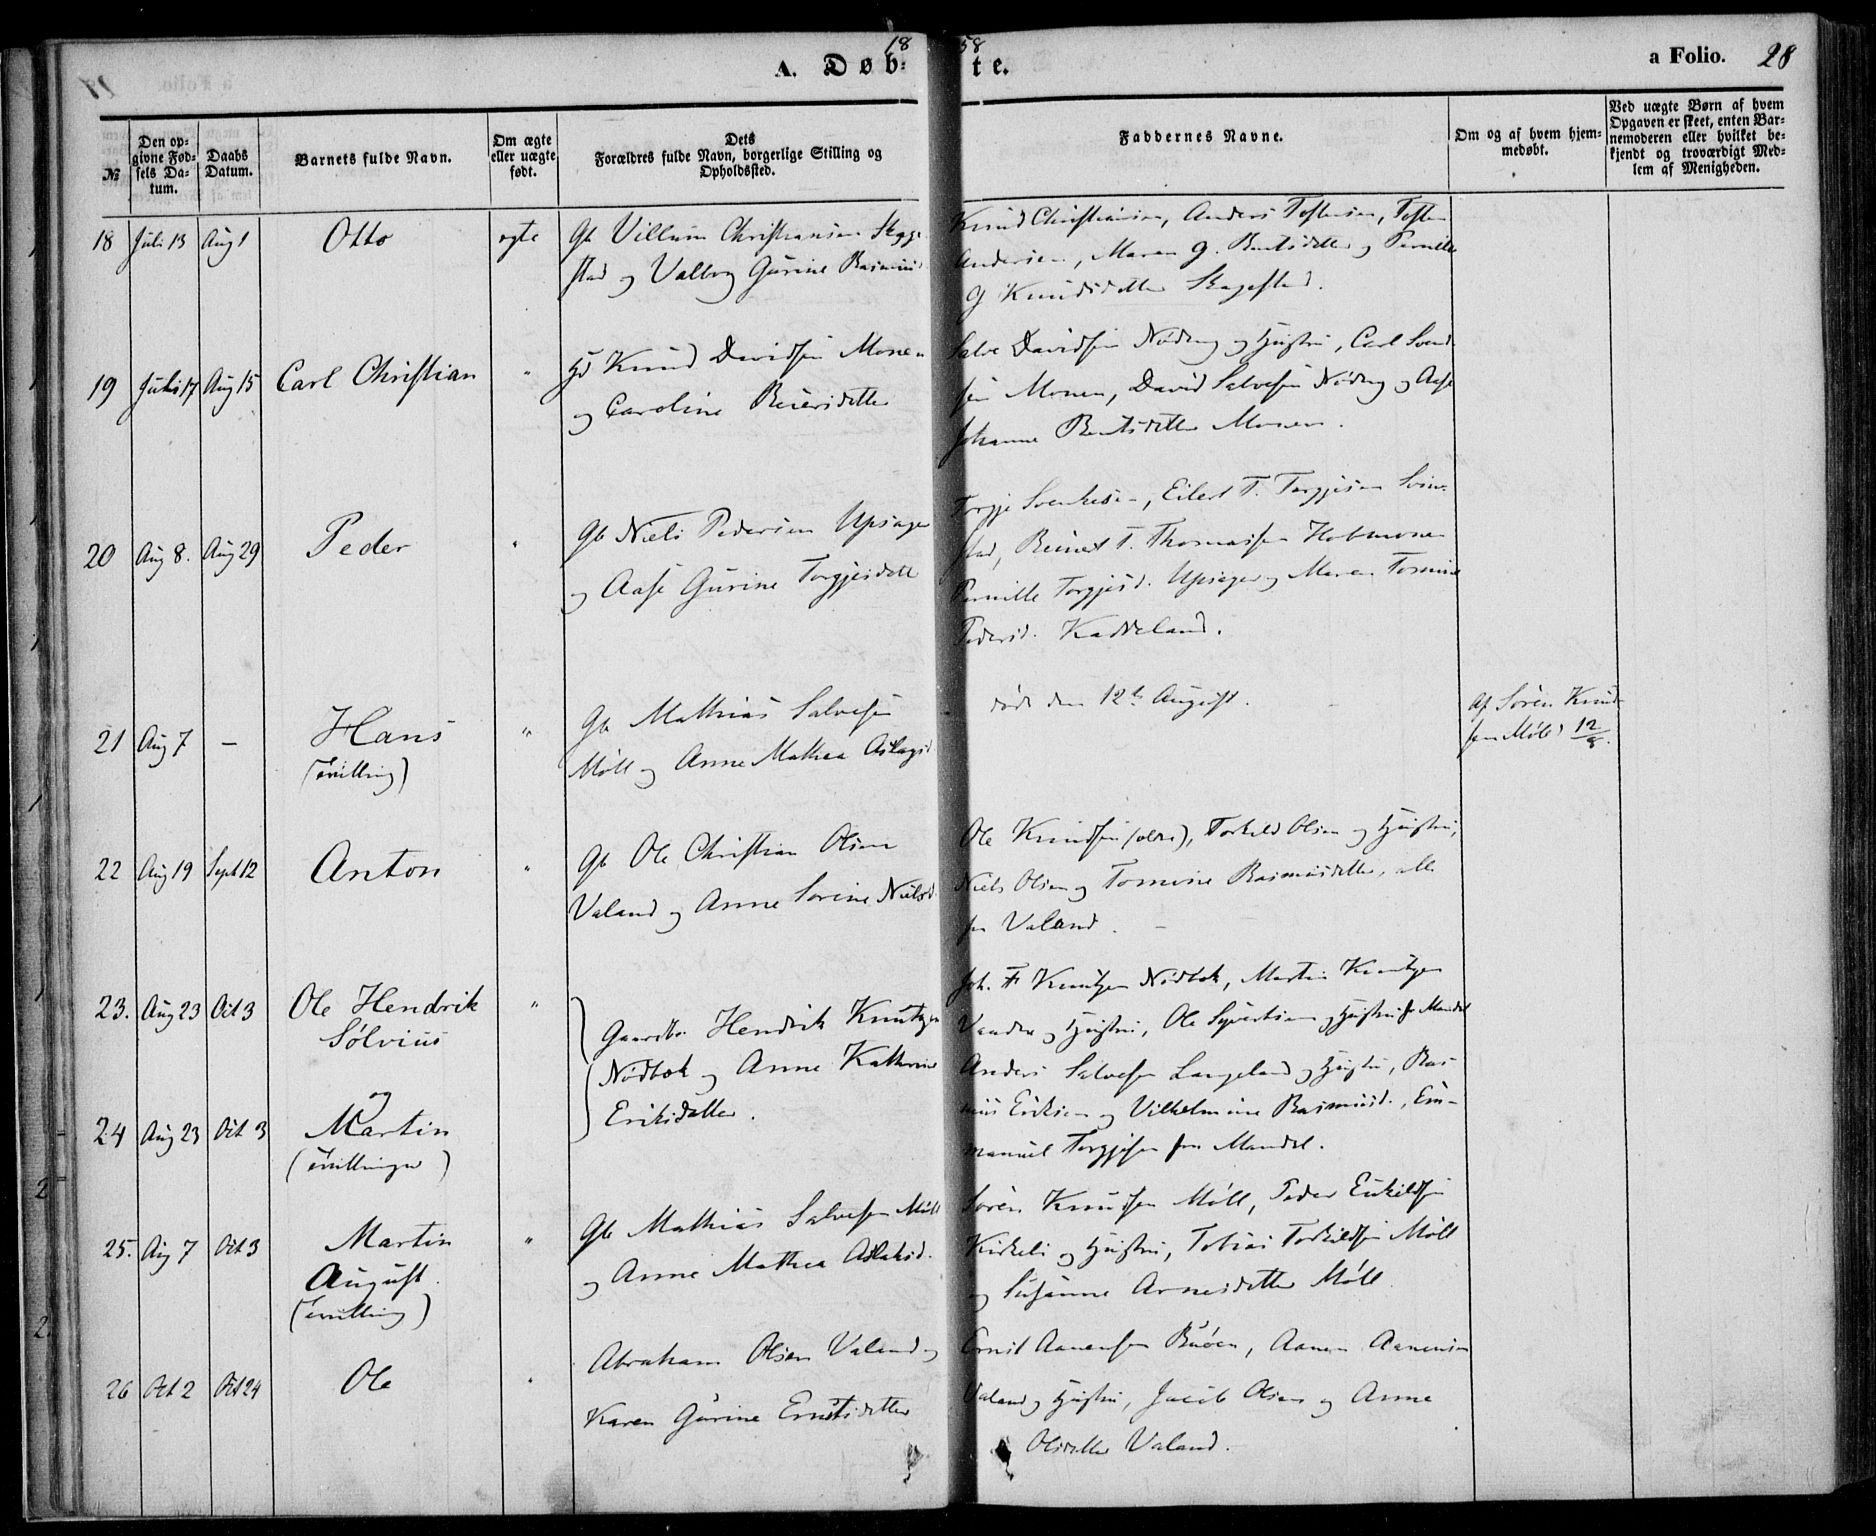 18 58
A. Døb- te.
a Folio. 28
№
Den op-
givne Fød-
sels Da-
tum.
Daabs
Datum.
Barnets fulde Navn.
Om ægte
eller uægte
født.
Dets
Forældres fulde Navn, borgerlige Stilling og
Opholdssted.
Faddernes Navne.
Om og af hvem hjem-
medøbt.
Ved uægte Børn af hvem
Opgaven er skeet, enten Bar-
nemoderen eller hvilket be-
kjendt og troværdigt Med-
lem af Menigheden.
18 Juli 13 Aug 1 Otto ægte Gb Villum Christiansen
stad og Valborg Gurine Rasmusd
Knud Christiansen, Anders Toftesen, Tofte
Andersen, Maren G. Bentsdatter og Pernille
G Knudsdatter
19 Juli 17 Aug 15 Carl Christian " Hd Knud Davidsen Monen
og Caroline Reiersdatter
Salve Davidsen Nøding og Hustru, Carl Svend-
sen Monen, David Salvesen Nøding og Aase
Johanne Bentsdatter Monen.
20 Aug 8. Aug 29 Peder " Gb Niels Pedersen Upsager
og Aase Gurine Torgjesdatt
Torgje Svenkesen, Eilert T. Torgjesen Svin-
stad, Reinert T. Thomassen Holmmonen
Pernille Torgjesd. Upsager og Maren Tomine
Pedersd. Kaddeland.
21 Aug 7 – Hans " Gb Mathias Salvesen
(tvilling)
Møll og Anne Mathea Aslagsd
døde den 12te August.
af Søren Knud-
sen Møll 12/8.
22 Aug 19 Sept 12 Anton " Gb Ole Christian Olsen
Valand og Anne Sørine Nielsd
Ole Knudsen (ældre), Torkild Olsen og Hustru,
Niels Olsen og Tomine Rasmusdatter, alle
fra Valand.
23. Aug 23 Oct 3 Ole Hendrik " Gaardbr. Hendrik Knutzen
Sølvius
Nødbæk og Anne Kathrine
Eriksdatter.
og
24 Aug 23 Oct 3 Martin
(tvillinger)
Joh. F Knutzen Nødbæk, Martin Knutzen
og Hustru, Ole Syvertsen og Hustru fr Mandal
Anders Salvesen Langeland og Hustru, Ras-
mus Eriksen og Vilhelmine Rasmusd., Em-
manuel Torgjesen fra Mandal.
25. Aug 7 Oct 3 Martin " Gb Mathias Salvesen Møll
August.
(tvilling)
og Anne Mathea Aslaksd.
Søren Knudsen Møll, Peder Eskildsen
Kirkeli og Hustru, Tobias Torkildsen Møll
og Susanne Arnesdatter Møll
26 Oct 2 Oct 24 Ole " Abraham Olsen Valand og
Karen Gurine Erntsdatter
Ernst Aanensen Buøen, Aanen Aanensen
Valand og Hustru, Jacob Olsen og Anne
Olsdatter Valand.